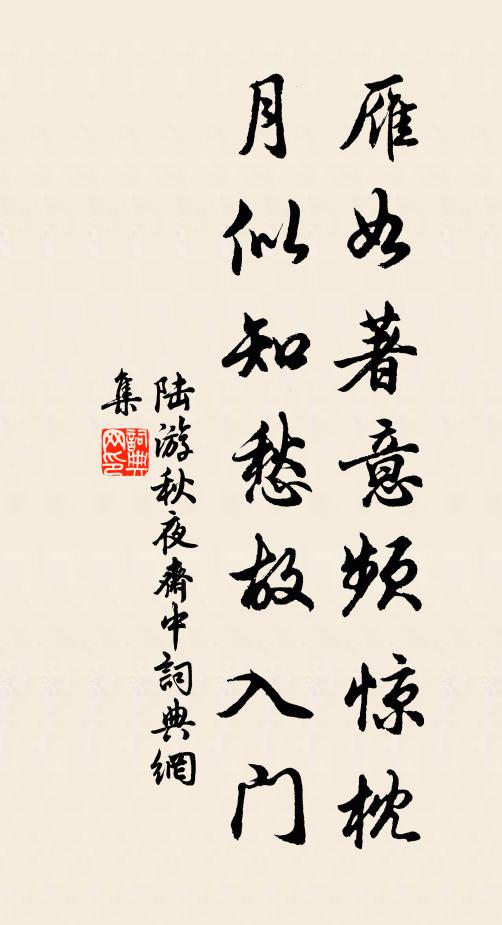 雁如著意频惊枕
月似知愁故入门
陆游秋夜齋中詞典網
集
詞典网印